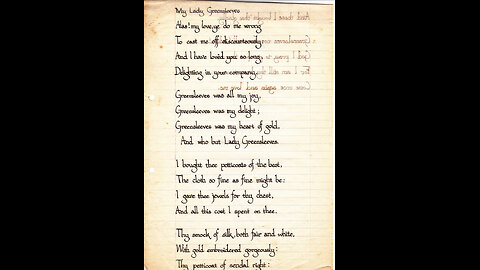 My Lady Greensleeves
Alas! my love, ye do me wrong
To cast me off discourteously:
And I have loved you so long,
Delighting in your company.
Greensleeves was all my joy,
Greensleeves was my delight;
Greensleeves was my heart of gold,
And who but Lady Greensleeves.
I bought thee petticoats of the best,
The cloth so fine as fine might be:
I gave thee jewels for thy chest,
And all this cost I spent on thee.
Thy smock of silk, both fair and white,
With gold embroidered gorgeously:
Thy petticoat of sendal right: